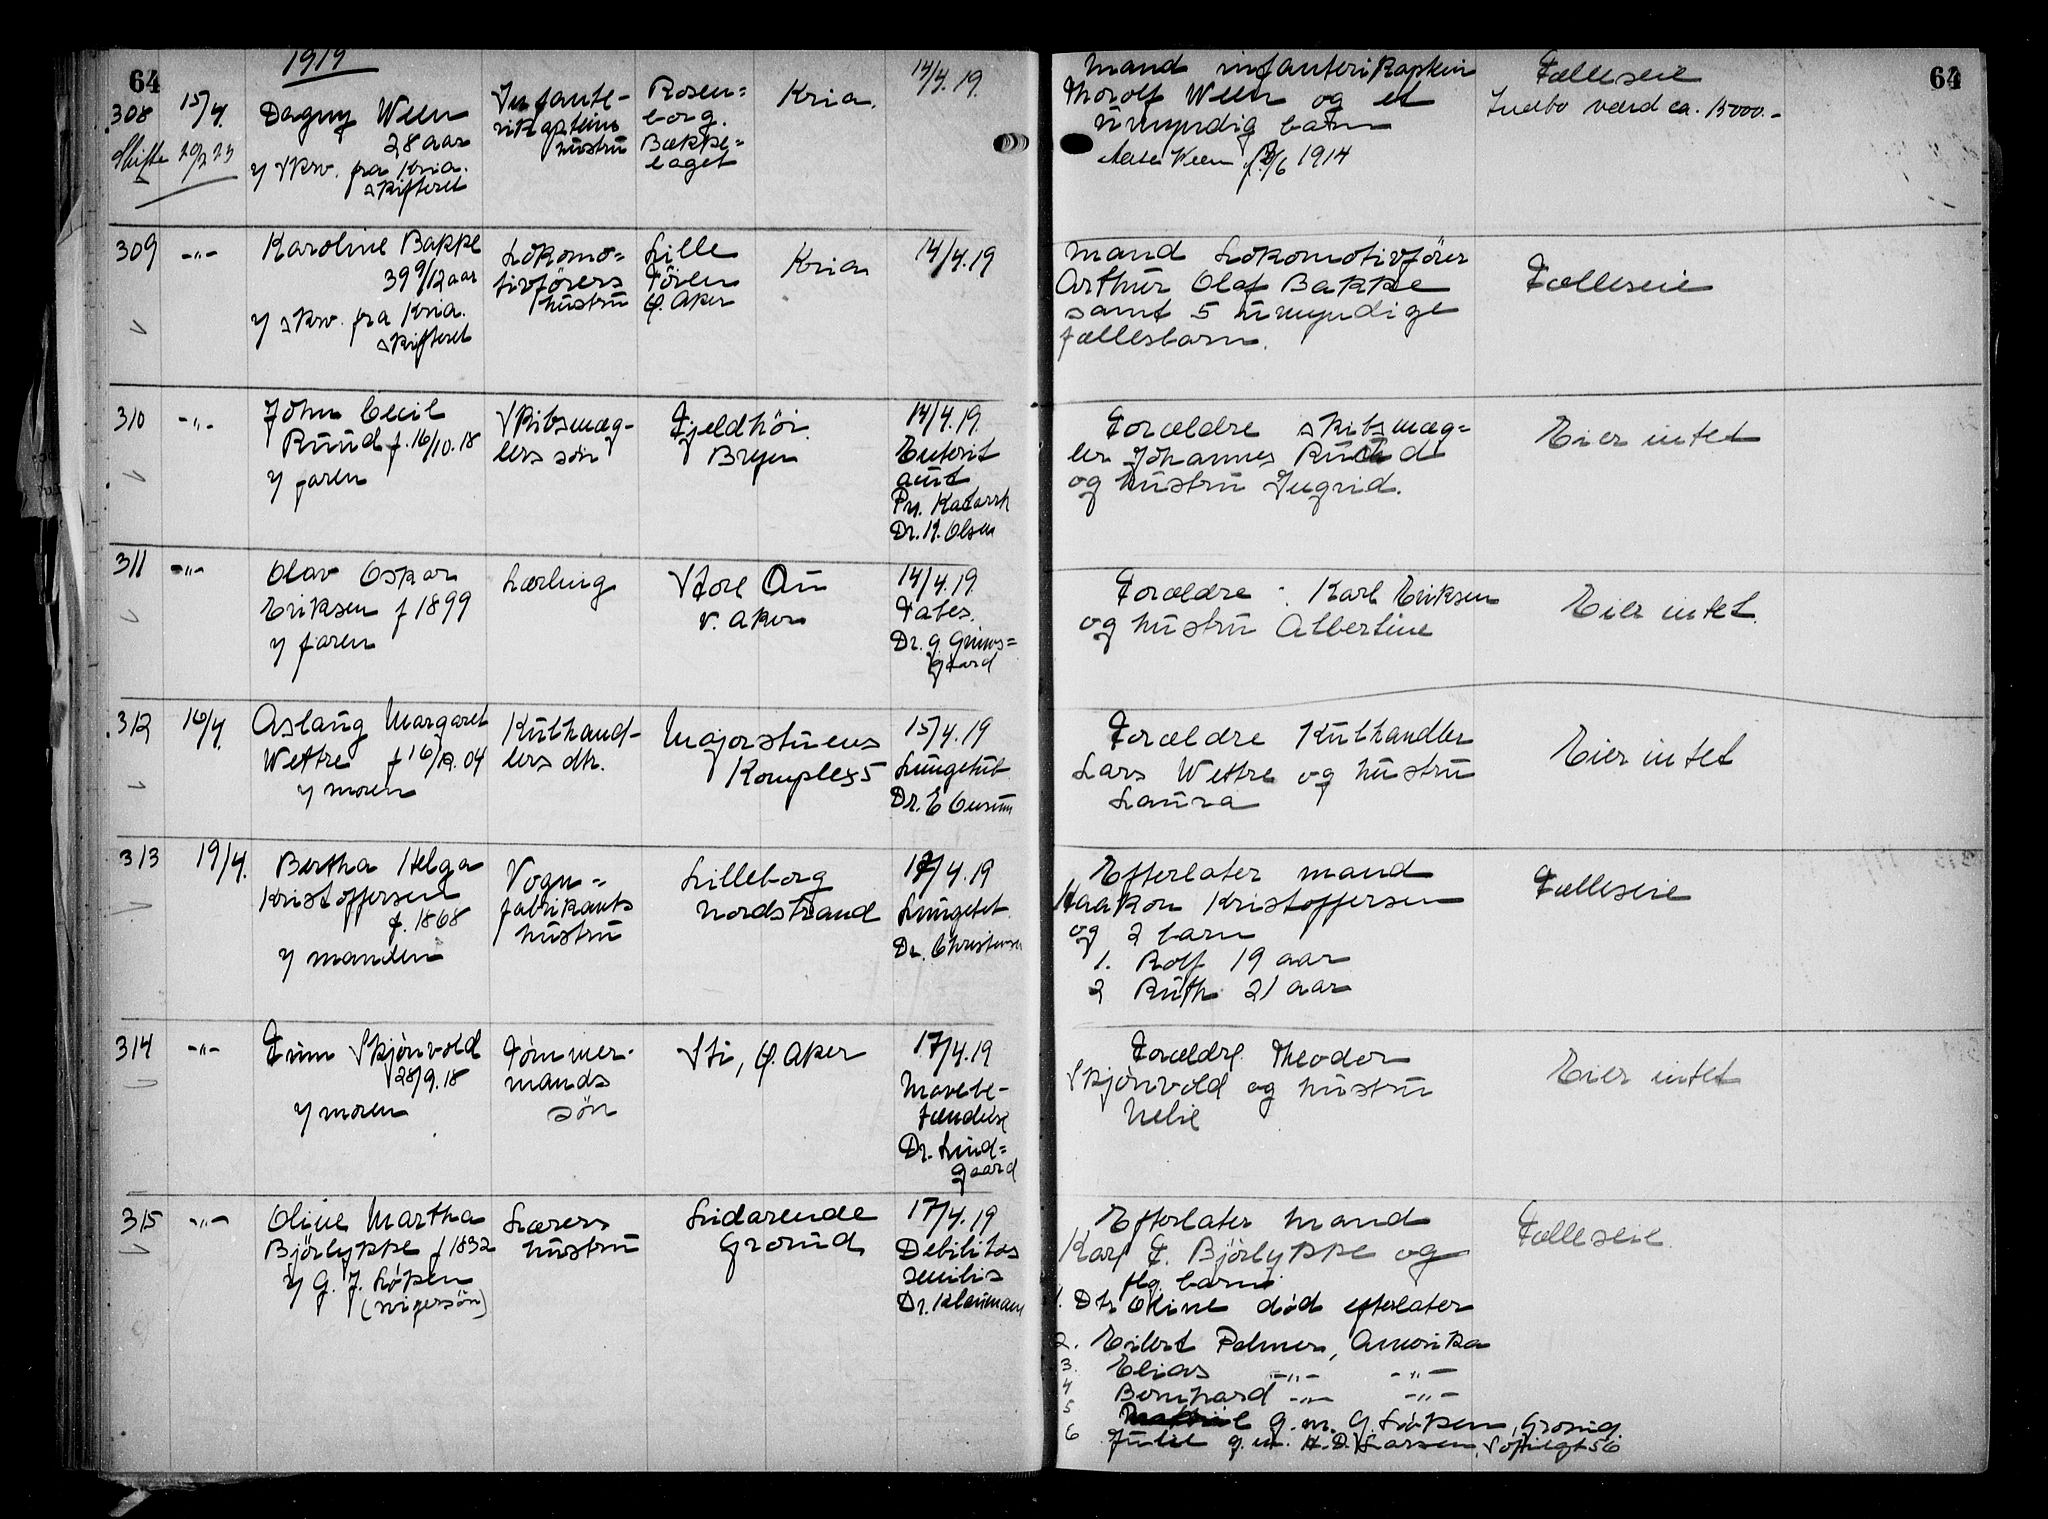 64
1919
308
15/4.
Dagny Ween
28 aar
y skrv. fra Kria.
skifteret
Skifte 20/2 23
Infante-
rikapteins
hustru
Rosen=
borg.
Bække=
laget
Kria.
14/4.19.
Mand infanterikaptein
Thorolf Ween og et
umyndig barn
Ween f. /6 1914
Fælleseie
Indbo værd ca. 15000.-
64
309
-"-
Karoline Bakke
39 9/12 aar
y skrv. fra Kria.
skifteret
Lokomo=
tivførers
hustru
Lille
Tøien
Ø. Aker
Kria
14/4.19
Mand Lokomotivfører
Arthur Olaf Bakke
samt 5 umyndige
fællesbarn.
Fælleseie
310
-"-
John Cecil
Ruud f. 16/10.18
y faren
Skibsmæg-
lers søn
Fjeldhöi.
Bryn
14/4.19.
Enterit
acut
Pn. Katarrh
Dr. H. Olsen
Forældre skibsmæg=
ler Johannes Ruud
og hustru Ingrid.
Eier intet
311
-"-
Olav Oskar
Eriksen f 1899
y faren
Lærling
Store Ou
v. Aker
14/4.19.
Tabes.
Dr. G. Grims=
gaard
Forældre : Karl Eriksen
og hustru Albertine
Eier intet.
312
16/4.
Aslaug Margaret
Wettre f 16/12.04
y moren
Kulhand-
lers dtr.
Majorstuens
Kompleks 5
15/4.19
Lungetub.
Dr. E
Forældre Kulhandler
Lars Wettre og hustru
Laura
Eier intet
313
19/4.
Bertha Helga
Kristoffersen
f. 1868
y manden
Vogn=
fabrikants
hustru
Lilleborg
Nordstrand
17/4.19
Lungebet.
Dr. Christensen
Efterlater mand
Haakon Kristoffersen
og 2 barn
1. Rolf 19 aar
2 Ruth 21 aar
Fælleseie
314
-"-
Finn Skjønvold
28/9.18
y moren
Tømmer-
mands
søn
Sti, Ø. Aker
17/4.19
Mavebe-
tændelse
Dr. Lind=
gaard
Forældre Theodor
Skjønvold og hustru
Nelie
Eier intet
315
-"-
Oline Martha
Bjørlykke f 1832
y G. J. Løken
(svigersøn)
Lærers
hustru
Lidarende
Grorud
17/4.19
Debilitas
senilis
Dr. Klaumann
Efterlater mand
Karl F. Bjørlykke og
flg. barn
1. Dtr. Oline død efterlater
2. Eilert Palmer, Amerika
3. Elias -"- -"-
4 Bernhard -"- -"-
5 g. m. G. Løken, Grorud.
6 Julie g. m. K. D. Larsen, Sofliegt 56
Fælleseie